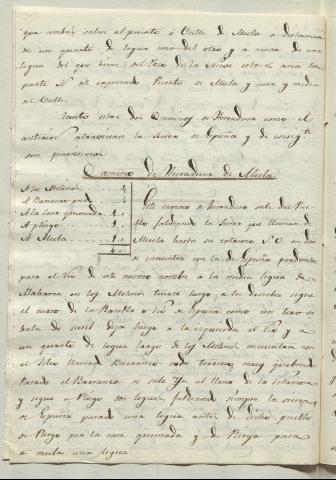 que ambos salen al puerto ó Calle de Mula a distancia
de un quarto de legua uno del otro y á cerca de una
legua del que viene del Pozo de la Nieve esto es acia la
parte N. el expresado Puerto de Mula y una y media
el Valle.
Tanto estos dos Caminos de Herradura como el
anterior atraviesan la Sierra de Espuña y de consigte
son penosisimos.
Camino de Herradura de Mula
A los Molinos
A Barranco
A la casa quemada
A pliego
A Mula
Este camino de herradura sale del Pue
blo faldeando la Sierra que llaman de
Muela hasta su extremo S.O. en don
se encuentra con la de Espuña
para el Rio de este mismo nombre á la media legua de
en los Molinos luego a la derecha sigue
el curso de la Rambla ó Rio de Espuña como un
deja luego á la izquierda el Rio y a
un quarto de legua largo de los Molinos encuentra con
el Sitio llamado Barranco terreno muy quebrado
Pasado el Barranco se sale al llano de la
y sigue a Pliego dos leguas, faldeando siempre la sierra
de Espuña pasando una legua antes de dicho pueblo
de Pliego por la casa quemada y de Pliego pasa
a mula una legua